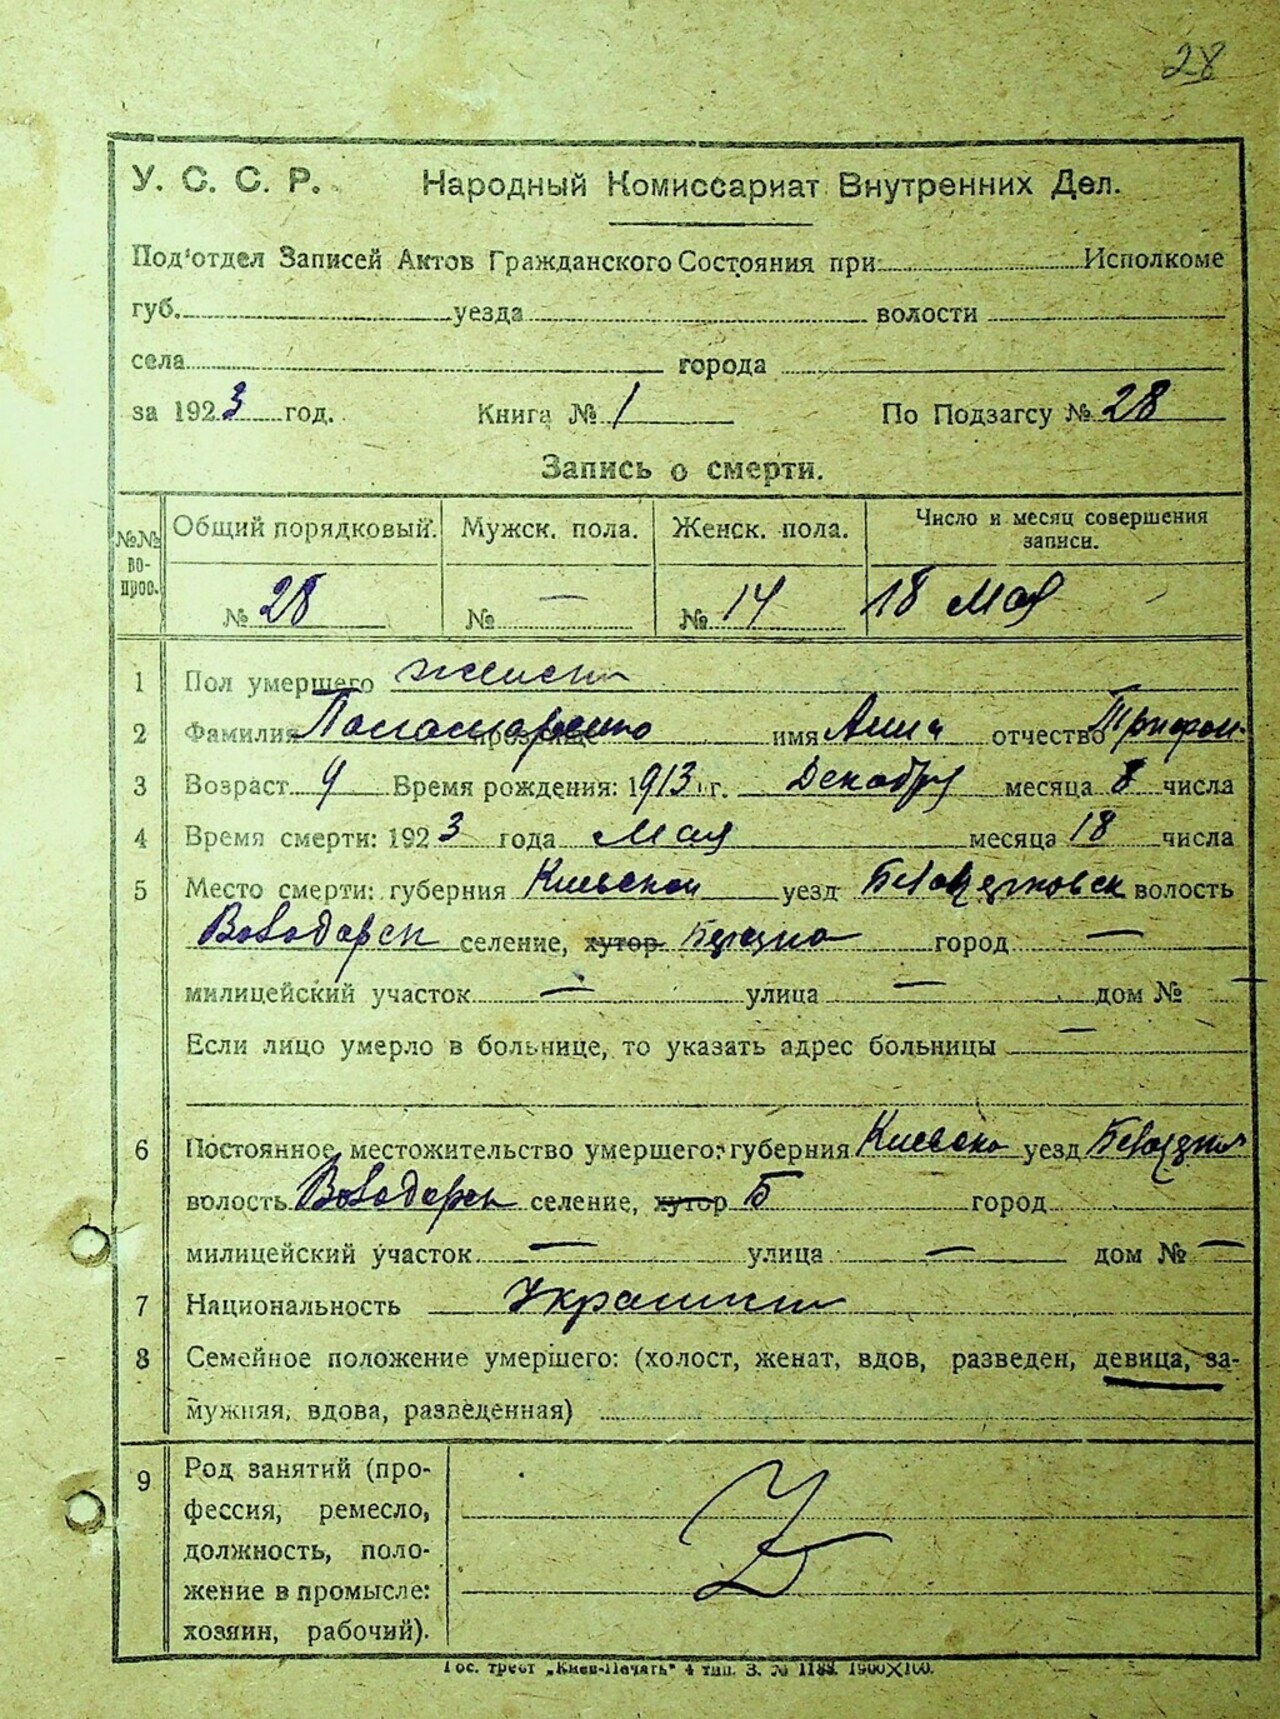 28
У. С. С. Р. Народный Комиссариат Внутренних Дел.
Под'отдел Записей Актов Гражданского Состояния при Исполкоме
губ. уезда волости
села города
за 1923 год. Книга № 1 По Подзагсу № 28
Запись о смерти.
№№ во-прос. Общий порядковый. Мужск. пола. Женск. пола. Число и месяц совершения записи.
№ 28 № — № 14 18 Мая
1 Пол умершего женск
2 Фамилия Пономаренко прозвище имя Анна отчество Трифон.
3 Возраст 9 Время рождения: 1913 г. Декабря месяца 8 числа
4 Время смерти: 1923 года Мая месяца 18 числа
5 Место смерти: губерния Киевской уезд Белоцерковск волость
Володарск селение, хутор город —
милицейский участок — улица — дом № —
Если лицо умерло в больнице, то указать адрес больницы —
6 Постоянное местожительство умершего: губерния Киевско уезд
волость Володарск селение, хутор Б город
милицейский участок — улица — дом № —
7 Национальность
8 Семейное положение умершего: (холост, женат, вдов, разведен, девица, за-
мужняя, вдова, разведенная)
9 Род занятий (про-
фессия, ремесло,
должность, поло-
жение в промысле:
хозяин, рабочий).
Гос. трест „Киев-Печать" 4 тип. З. № 1189. 1900X100.